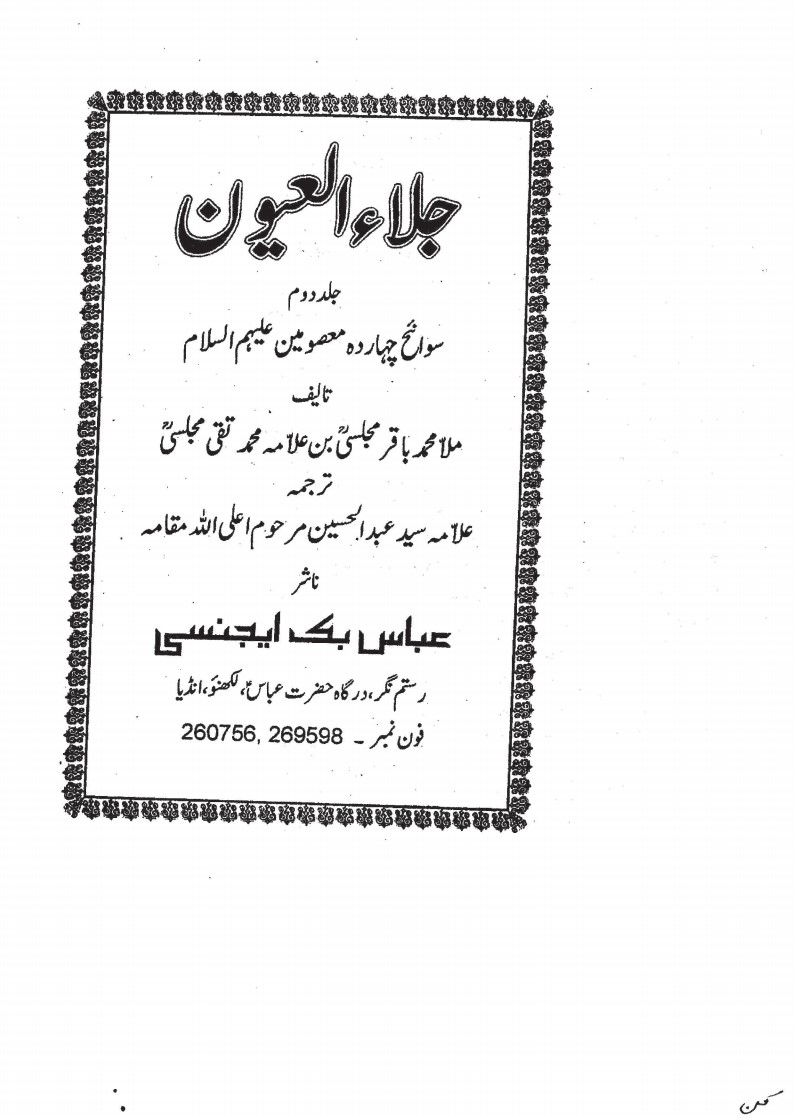 جلاء العیون
جلد دوم
سوانح چہاردہ معصومین علیہم السلام
تالیف
ملا محمد باقر مجلسیؒ بن علاّمہ محمد تقی مجلسیؒ
ترجمہ
علاّمہ سید عبدالحسین مرحوم اعلی اللہ مقامہ
ناشر
عباس بک ایجنسی
رستم نگر، درگاہ حضرت عباسؑ، لکھنؤ، انڈیا
فون نمبر ۔ 260756, 269598